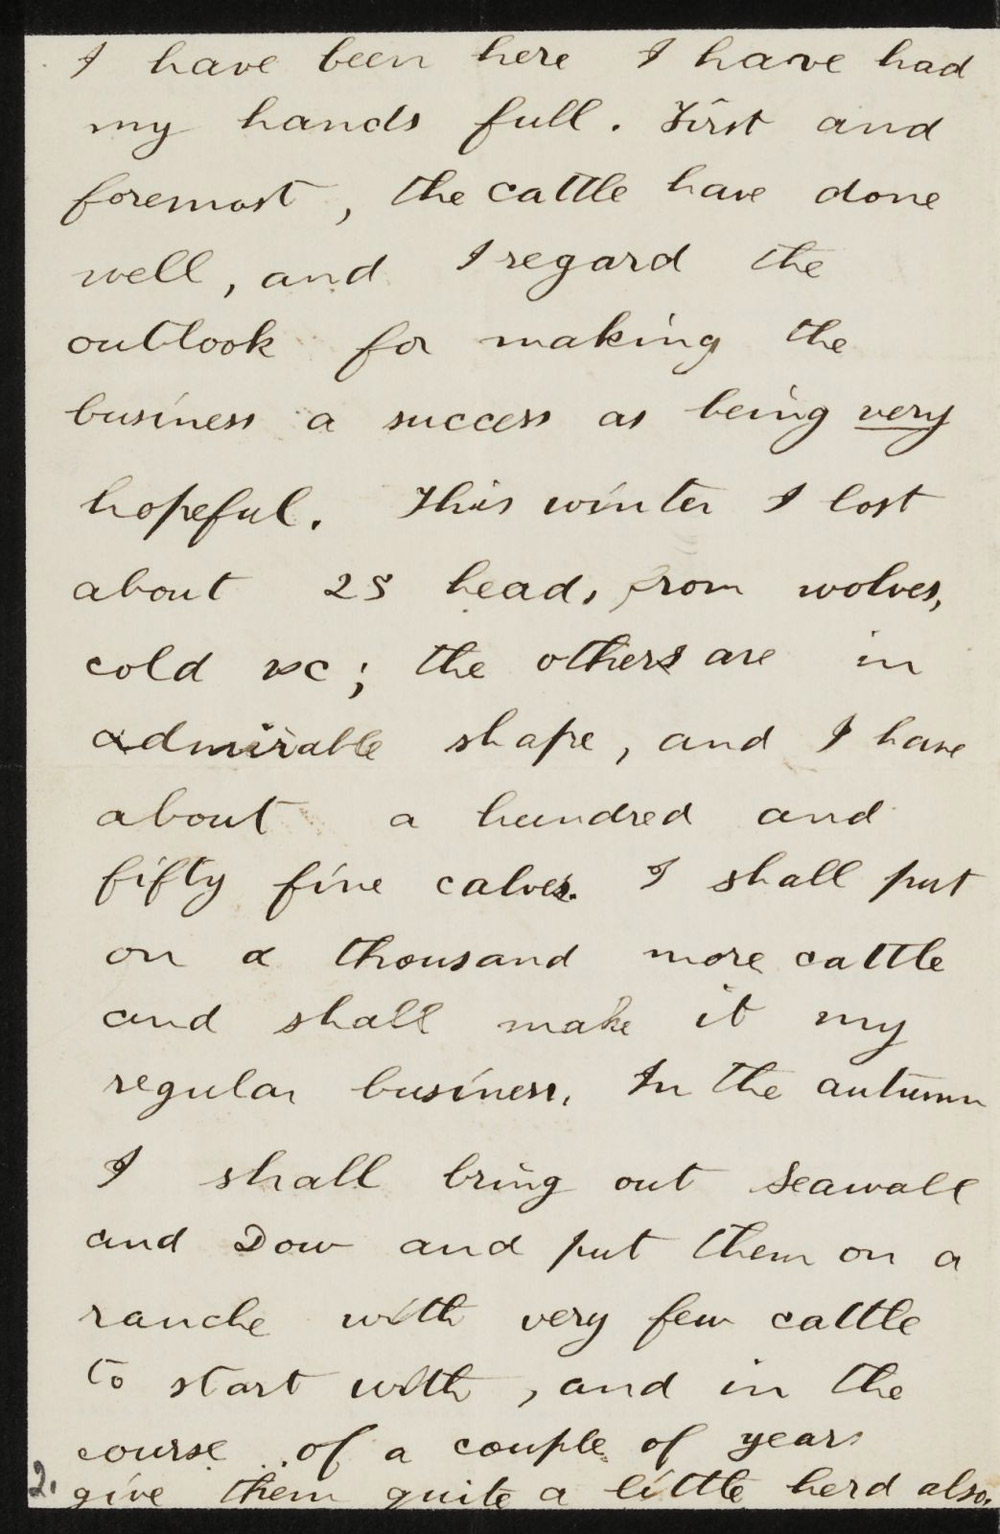 I have been here I have had
my hands full. First and
foremost, the cattle have done
well, and I regard the
outlook for making the
business a success as being very
hopeful. This winter I lost
about 25 head, from wolves,
cold &c; the others are in
admirable shape, and I have
about a hundred and
fifty fine calves. I shall put
on a thousand more cattle
and shall make it my
regular business. In the autumn
I shall bring out Seawall
and Dow and put them on a
ranche with very few cattle
to start with, and in the
course of a couple of years
2. give them quite a little herd also.